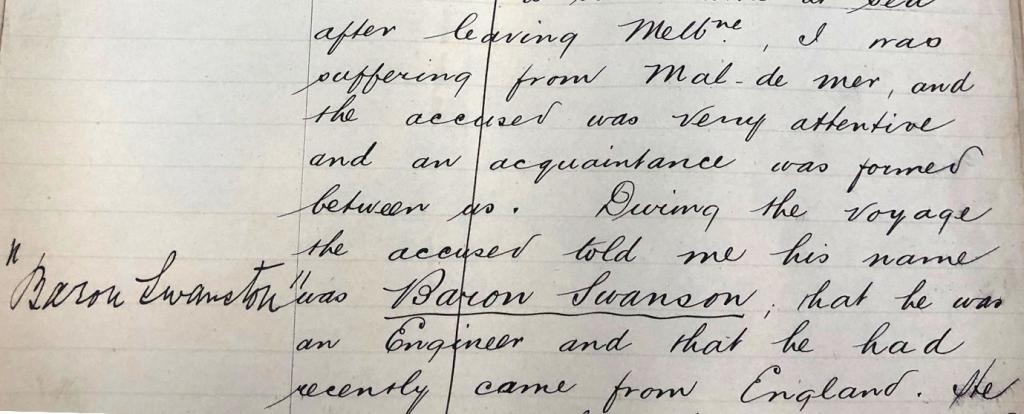 at sea
after leaving Melbne, I was
suffering from Mal-de mer, and
the accused was very attentive
and an acquaintance was formed
between us. During the voyage
the accused told me his name
"Baron Swanston" was Baron Swanson, that he was
an Engineer and that he had
recently came from England. He